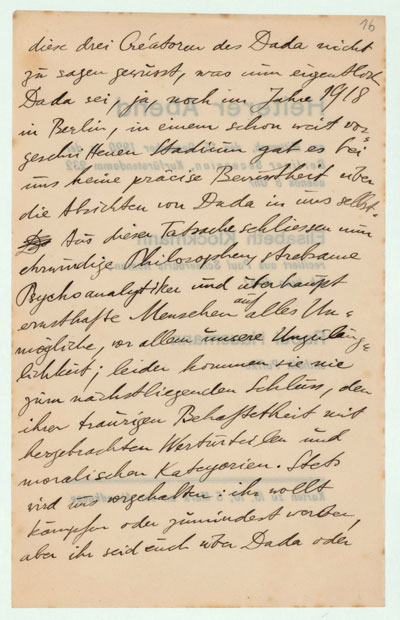 16
diese drei Créatoren des Dada nicht
zu sagen gewusst, was nun eigentlich
Dada sei, ja noch im Jahre 1918
in Berlin, in einem schon weit vor-
geschrittenen Stadium gab es bei
uns keine präcise Bewusstheit über
die Absichten von Dada in uns selbst.
Aus dieser Tatsache schliessen nun
ehrwürdige Philosophen, strebsame
Psychoanalytiker und überhaupt
ernsthafte Menschen auf alles Un=
mögliche, vor allem unsere Unzuläng=
lichkeit; leider kommen sie nie
zum nächstliegenden Schluss, den
ihrer traurigen Behaftetheit mit
hergebrachten Werturteilen und
moralischen Kategorien. Stets
wird uns vorgehalten: ihr wollt
kämpfen oder zumindest werben,
aber ihr seid euch über Dada oder